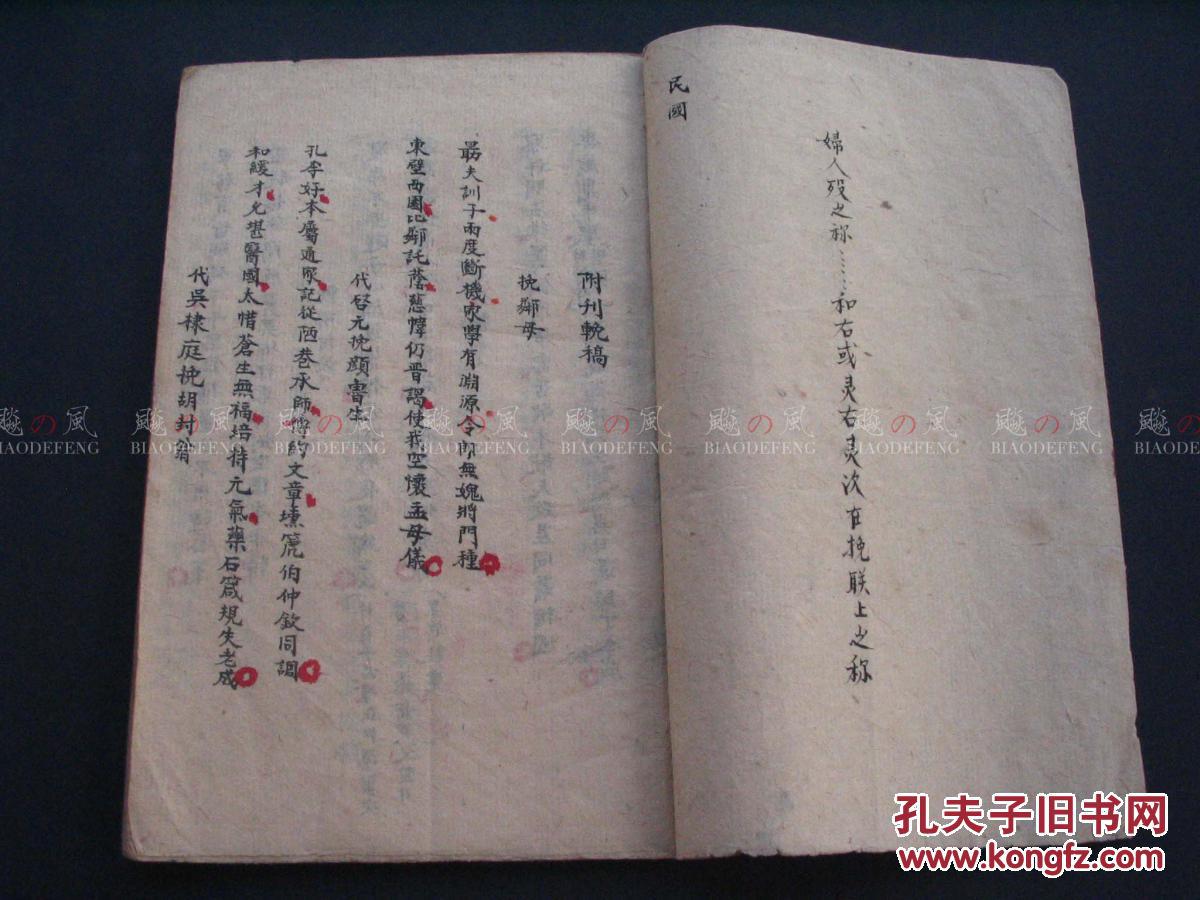 民國
婦人歿之称……和右或灵右灵次在挽联上之称
附刊輓稿
挽鄰母
勗夫訓子兩度斷機家學有淵源令郎無媿將門種
東壁西園比鄰託蔭慈幃仍晋謁使我空懷孟母儀
代啓元挽顔書生
孔李好本屬通家記從陋巷承師傅約文章壎篪伯仲欽同調
和緩才允堪醫國太惜蒼生無福培持元氣藥石箴規失老成
代吳棣庭挽胡封翁
飈の風 飈の風 飈の風 飈の風
BIAODEFENG BIAODEFENG BIAODEFENG BIAODEFENG
孔夫子旧书网
www.kongfz.com